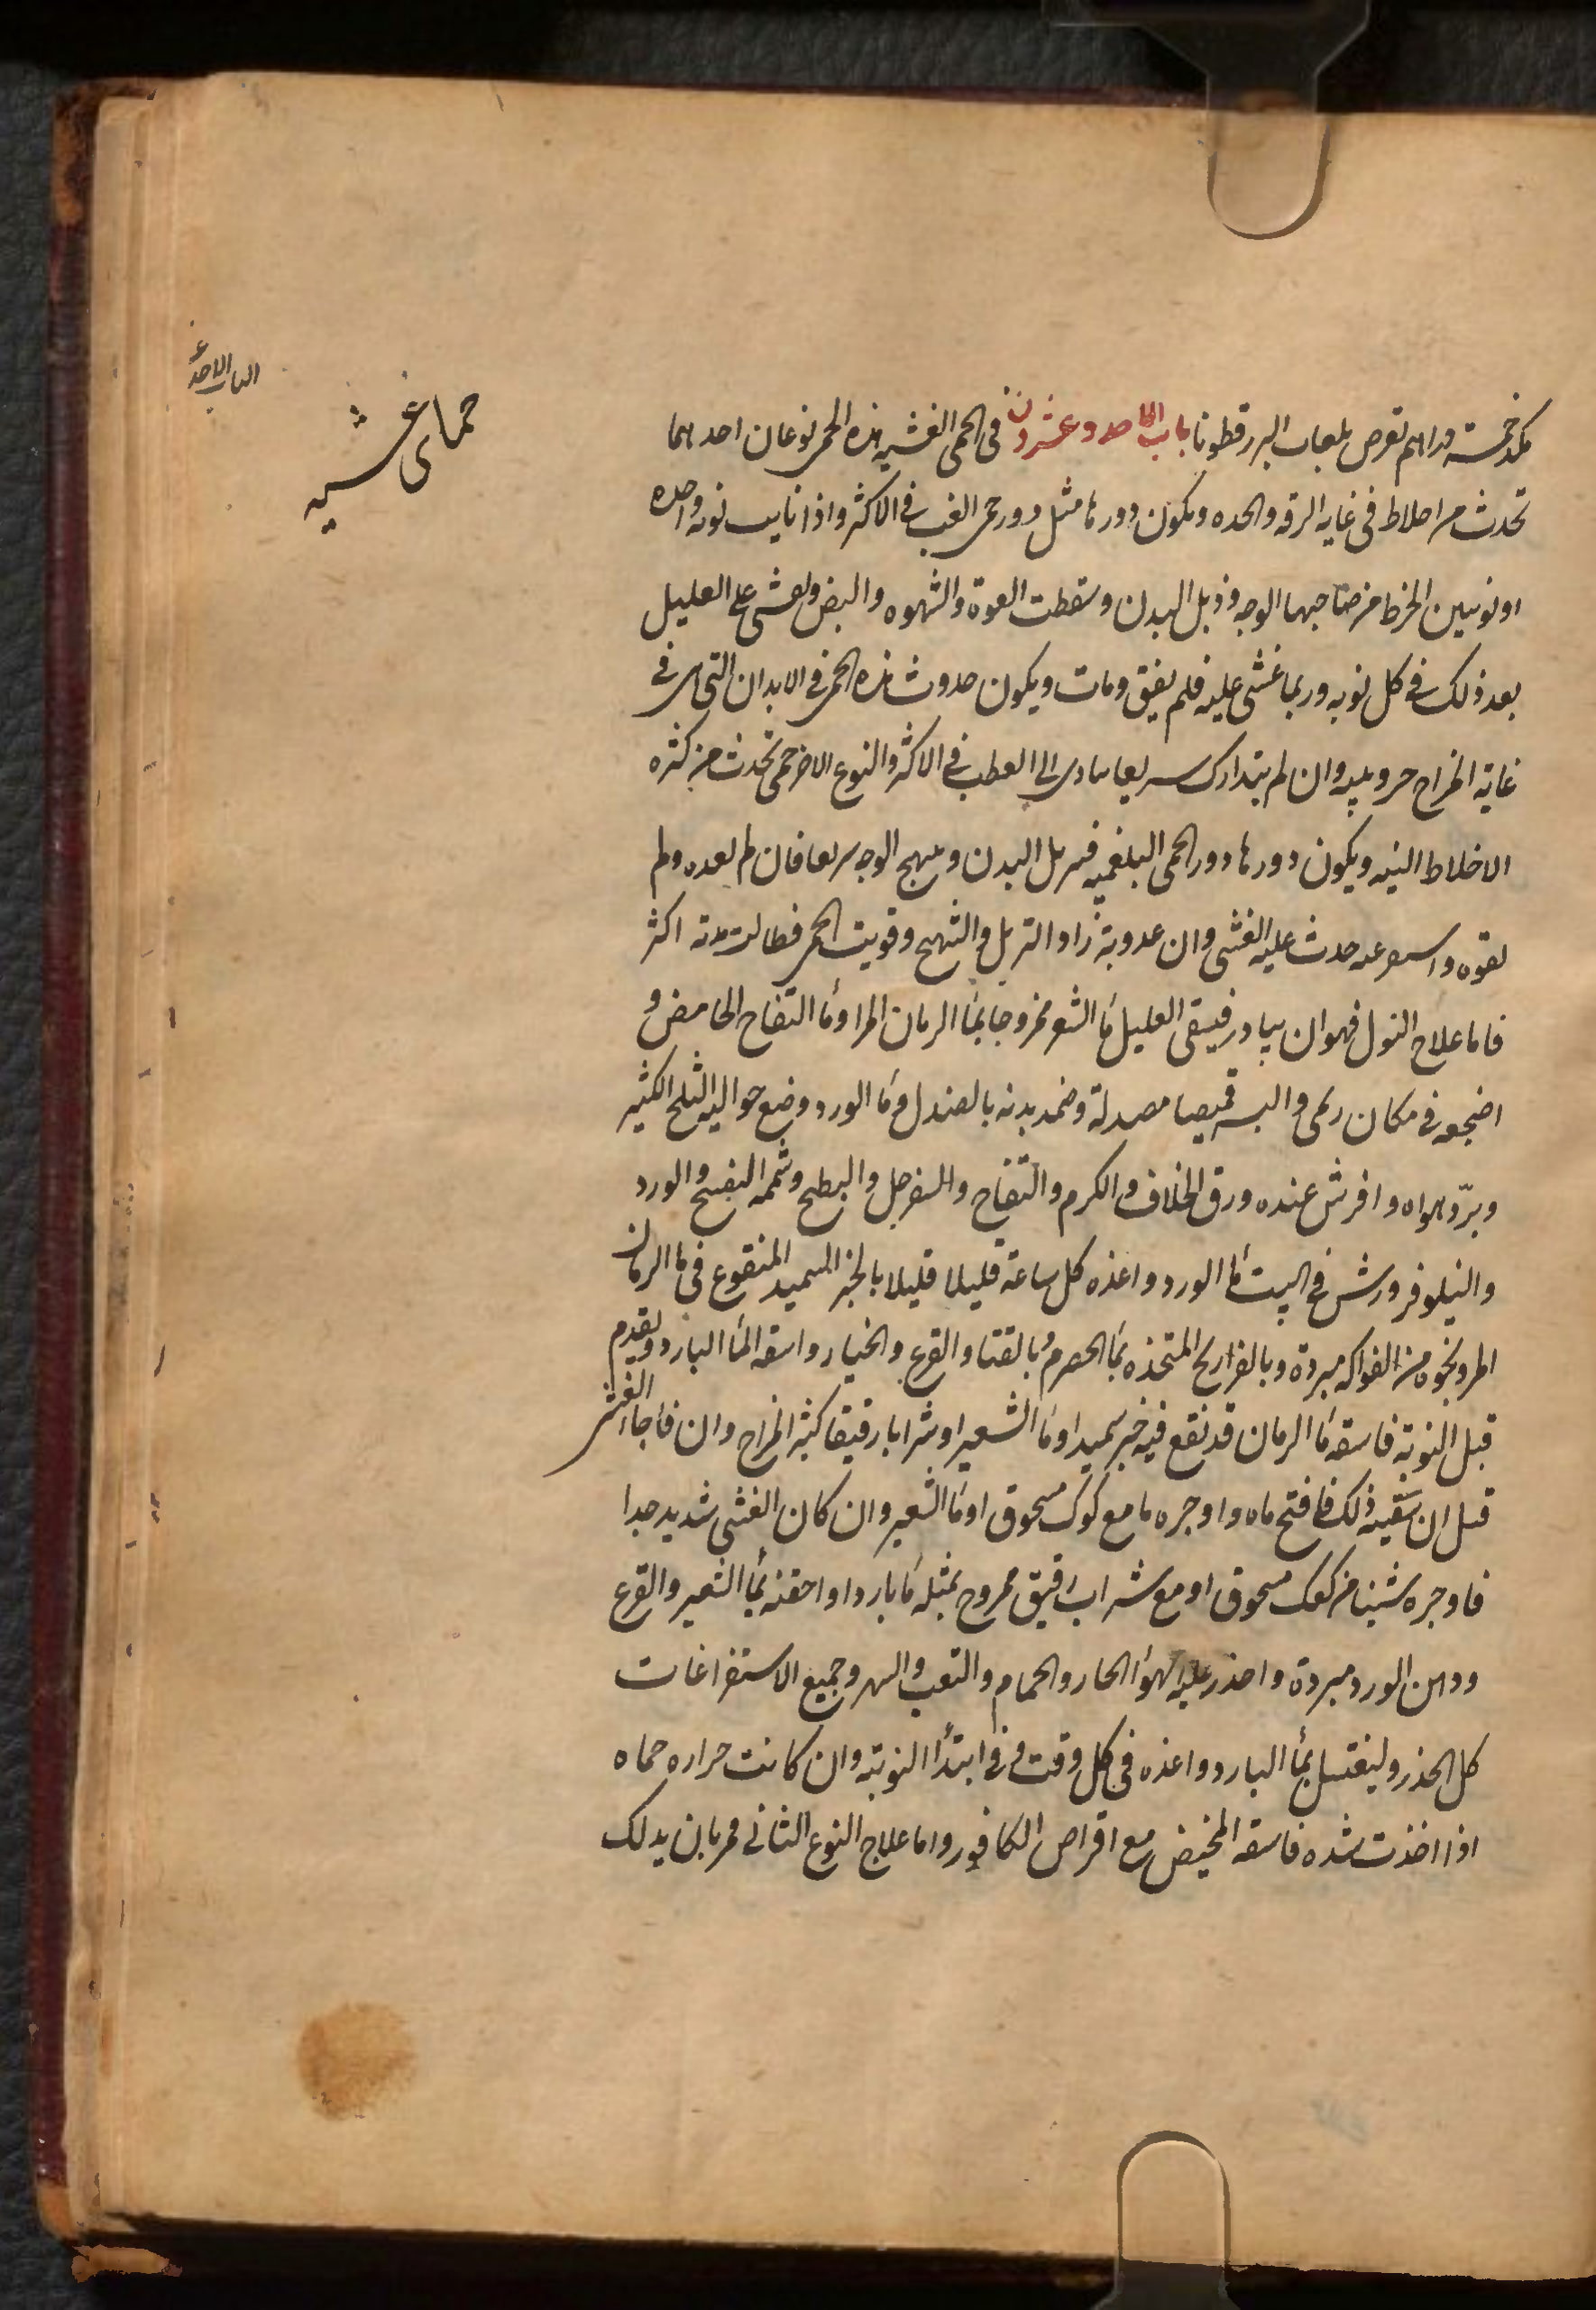 الباب الاحد ع
حمای غشیه
مکد خمسة دراهم تقرص بلعاب البزر قطونا باب الحاحد وعشرون فی الحمی الغشیه هذه الحمی نوعان احدهما
تحدث من اخلاط فی غایه الرقه والحده ویکون دورها مثل دور حمی الغب فی الاکثر واذا نابت نوبه واحده
او نوبتین انخرط من صاحبها الوجه وذبل البدن وسقطت القوة والشهوه والنبض ویغشی علی العلیل
بعد ذلک فی کل نوبه وربما غشی علیه فلم یفیق ومات ویکون حدوث هذه الحمی فی الابدان التی هی فی
غایة المزاج حر ویبس وان لم یتدارک سریعا تنادی الی العطب فی الاکثر والنوع الاخر حمی تحدث من کثره
الاخلاط النیه ویکون دورها دور الحمی البلغمیه فیربل البدن ویهیج الوجه سریعا فان لم تعده ولم
تقوه واسرعه حدث علیه الغشی وان عدوته زاد التربل والتهیج وقویت الحمی فطالت مدته اکثر
فاما علاج النول فهو ان یبادر فیسقی العلیل مآ الشعیر ممزوجا بمآ الرمان المز او مآ التفاح الحامض و
اضجعه فی مکان ریحی والبسه قمیصا مصندلة وضمد بدنه بالصندل ومآ الورد وضع حوالیه الثلج الکثیر
وبرّد هواه وافرش عنده ورق الخلاف والکرم والتفاح والسفرجل والبطیح وشممه البنفسج والورد
والنیلوفر ورش فی البیت مآ الورد واغذه کل ساعة قلیلا قلیلا بالخبز السمید المنقوع فی مآ الرمان
المز ونحوه من الفواکه مبردة وبالفراریج المتخذه بمآ الحصرم وبالقثا والقرع والخیار واسقه المآ البارد ویقدم
قبل النوبة فاسقه مآ الرمان قد نقع فیه خبز سمید او مآ الشعیر او شرابا رقیقا کثیر المزاج وان فاجا الغشی
قبل ان تسقیه ذلک فافتح فاه واوجره ما مع کوک مسحوق او مآ الشعیر وان کان الغشی شدید جدا
فاوجره شیئا من کعک مسحوق او مع شراب رقیق ممزوج بمثله مآ باردا واحقنه بمآ الشعیر والقرع
ودهن الورد مبردة واحذر علیه الهوآ الحار والحمام والتعب والسهر وجمیع الاستفراغات
کل الحذر ولیغتسل بمآ البارد واغذه فی کل وقت وفی ابتدآ النوبة وان کانت حراره حماه
اذا اخذت شده فاسقه المخیض مع اقراص الکافور واما علاج النوع الثانی فمر بان یدلک